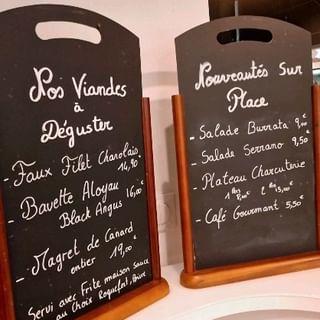 Nos Viandes
à
Déguster
- Faux Filet Charolais
14,90
- Bavette Aloyau 16,00
Black Angus
- Magret de Canard
entier 19,00
Servi avec Frite maison Sauce
au Choix Roquefort, Poivre
Nouveautés Sur
Place
- Salade Burrata 9,00€
- Salade Serrano 9,50€
- Plateau Charcuterie
- Café Gourmant 5,50€